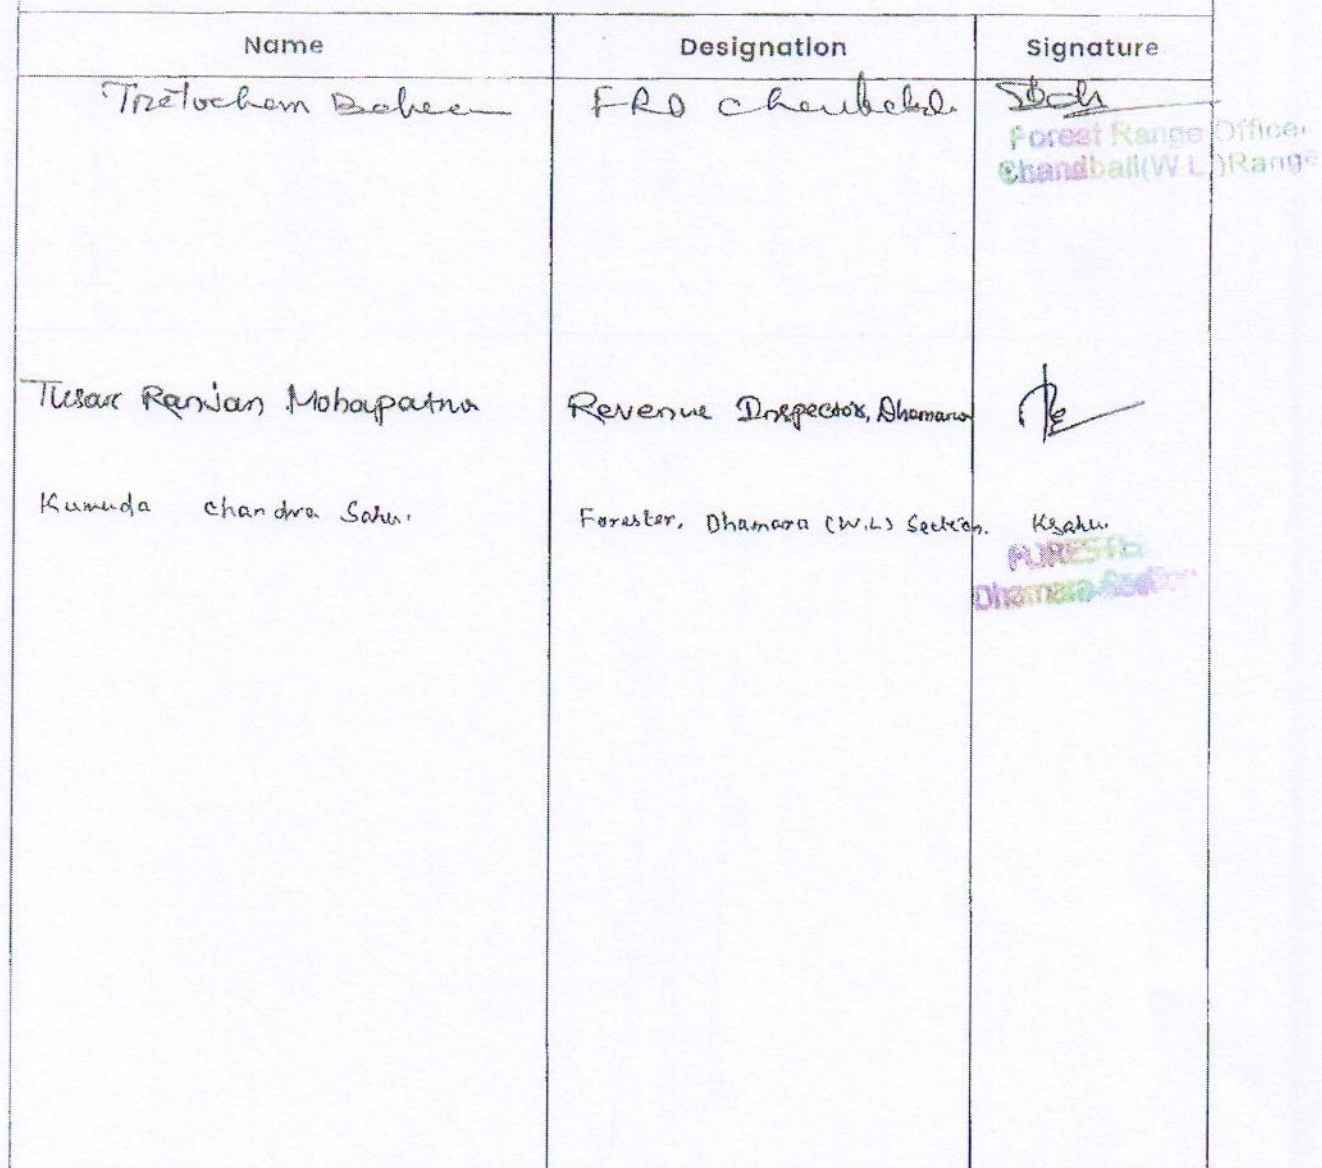 Name Designation Signature
FRO
Forest Range Officer
Chandbali(W.L.)Range
Tusar Ranjan Mohapatra Revenue Inspector, Dhamara
Kumuda Chandra Sahu. Forester, Dhamara (W.L) Section. Ksahu.
FORESTE
Dhamara Section